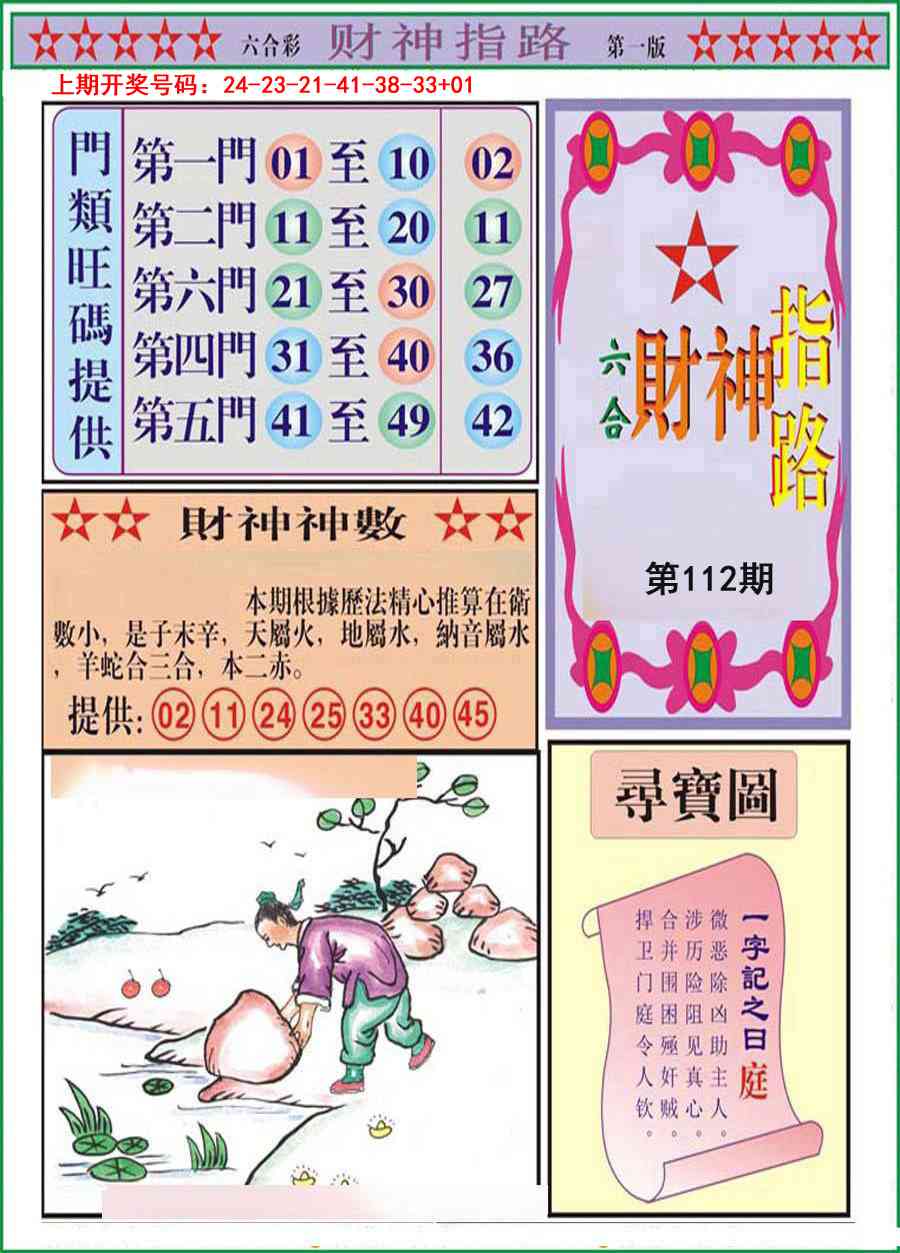 六合彩 财神指路 第一版
上期开奖号码：24-23-21-41-38-33+01
門類旺碼提供
第一門 01 至 10 02
第二門 11 至 20 11
第六門 21 至 30 27
第四門 31 至 40 36
第五門 41 至 49 42
六合 財神指路
第112期
財神神數
本期根據歷法精心推算在衛
數小，是子末辛，天屬火，地屬水，納音屬水
，羊蛇合三合，本二赤。
提供: 02 11 24 25 33 40 45
尋寶圖
一字記之曰庭
微恶除凶助主人。
涉历险阻见真心。
合并围困殛奸贼。
捍卫门庭令人钦。